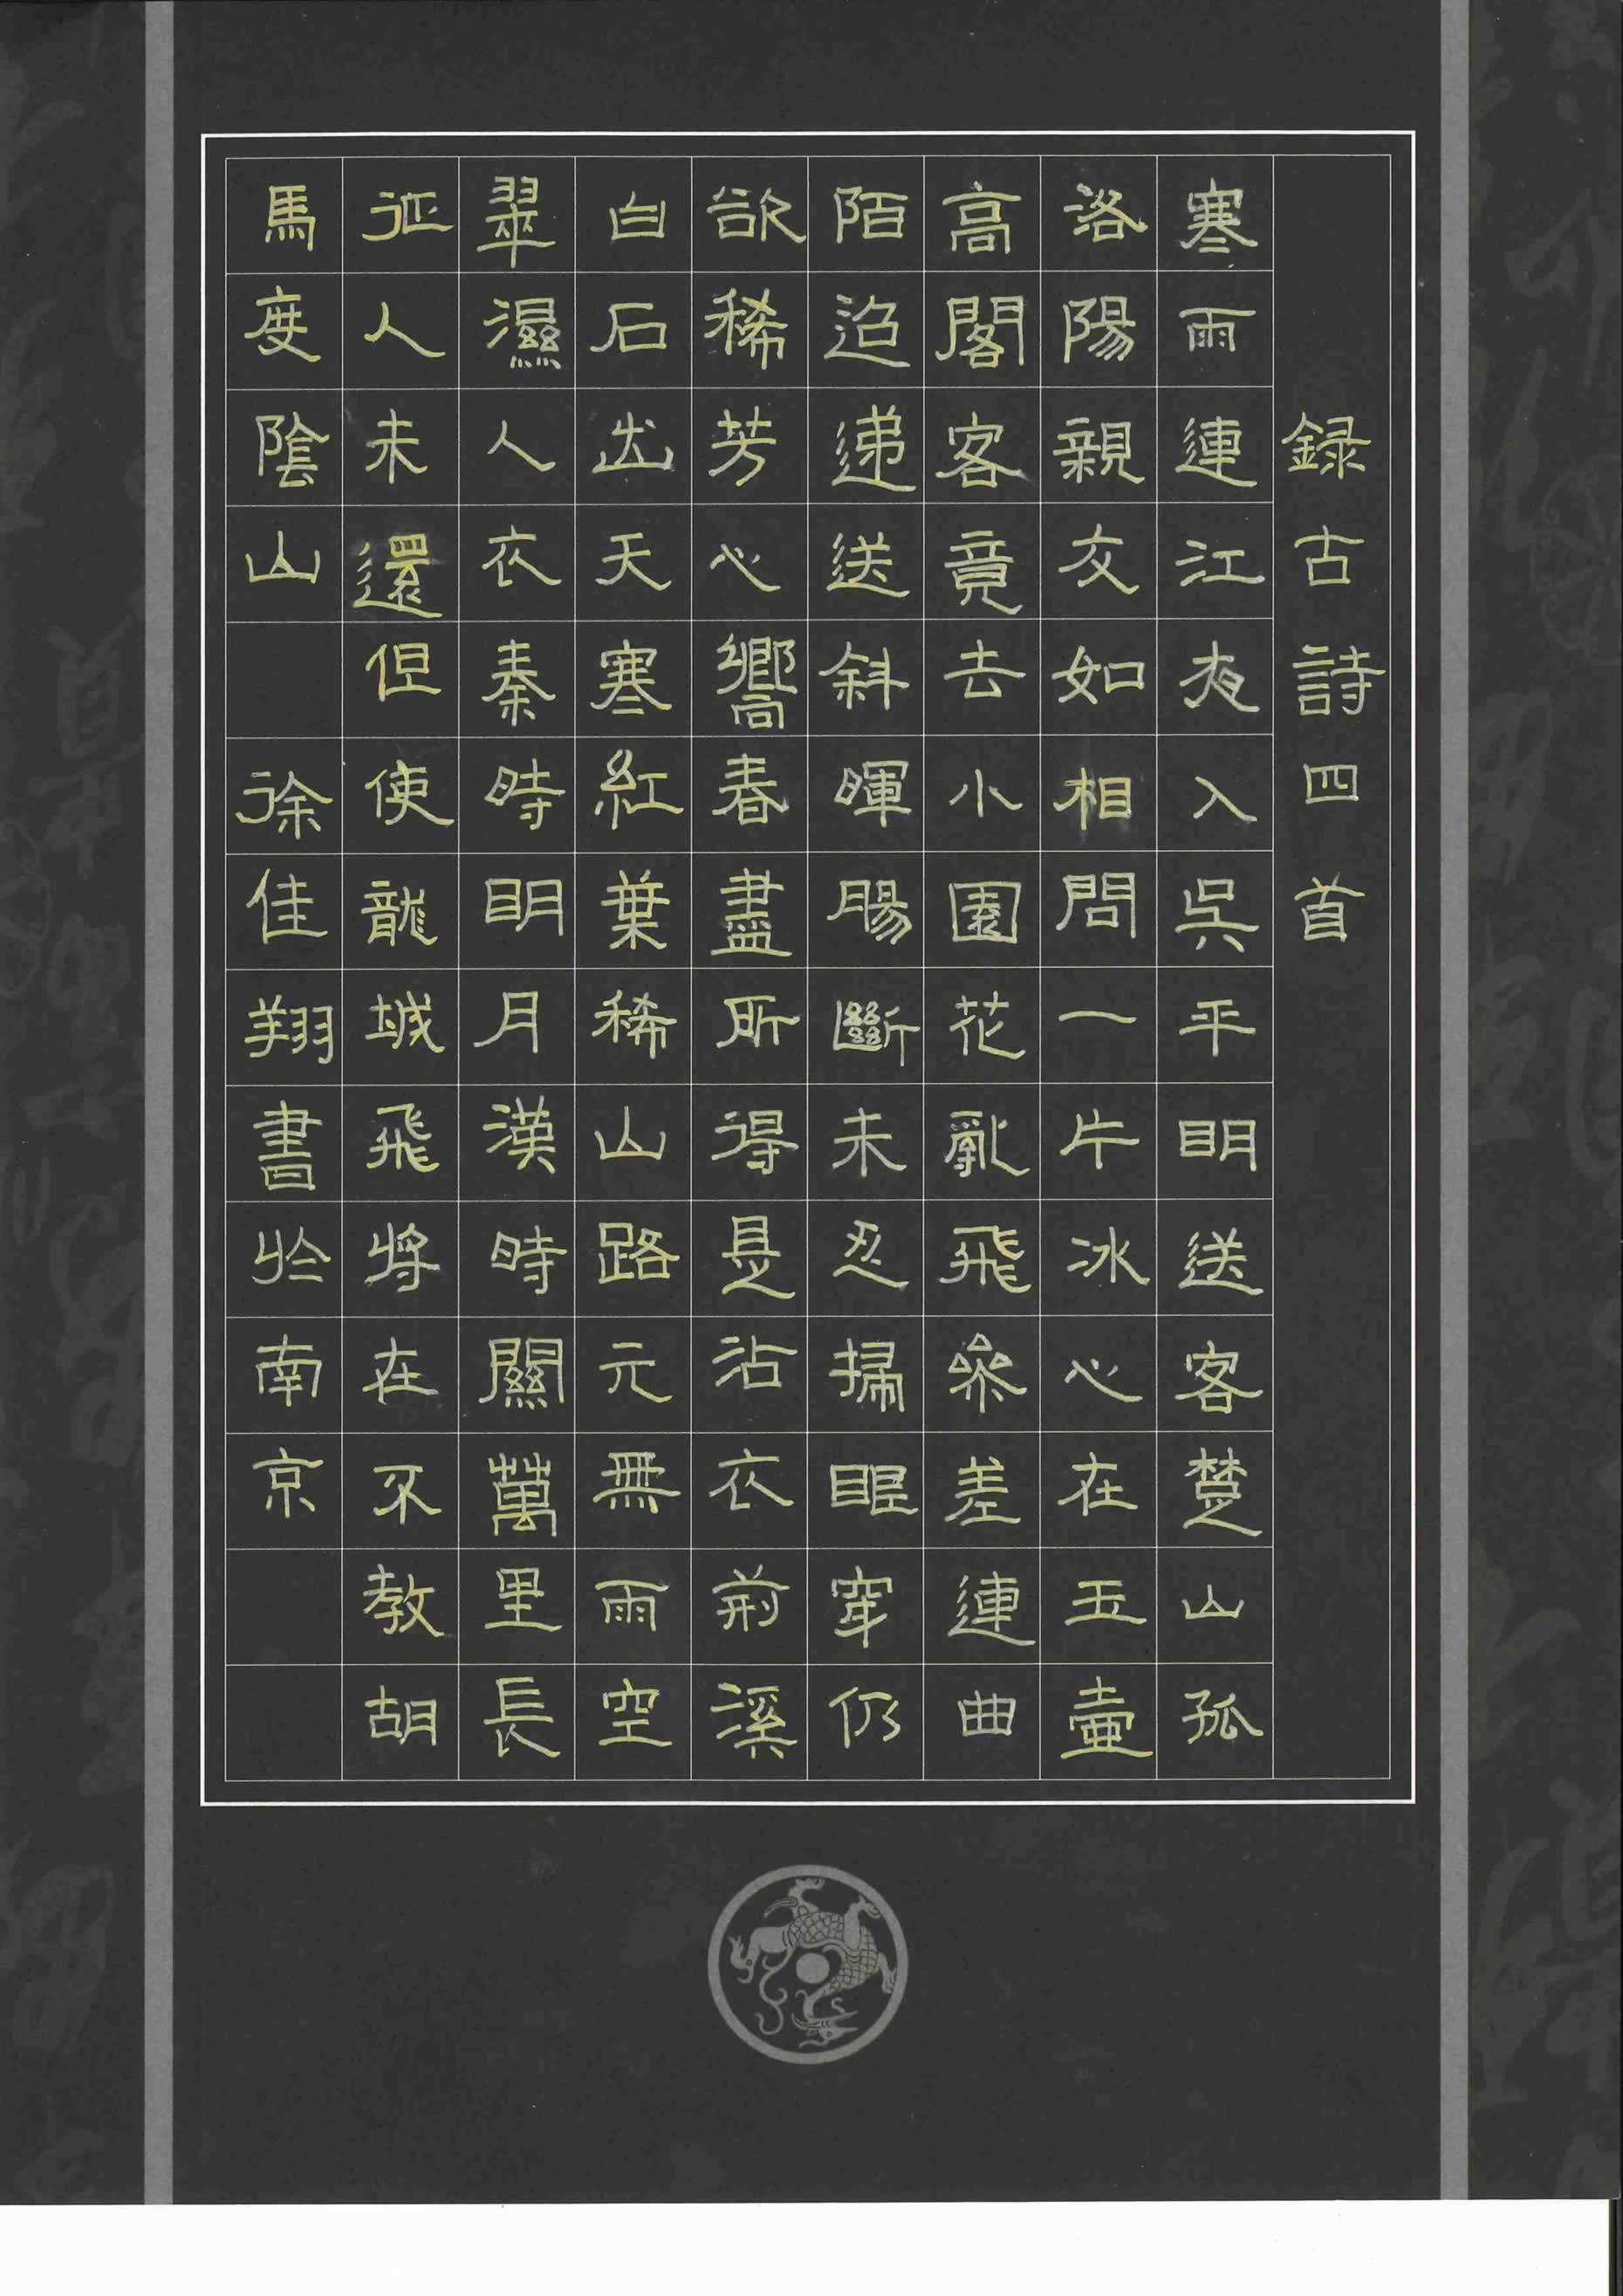 録古詩四首
寒雨連江夜入吳平明送客楚山孤
洛陽親友如相問一片冰心在玉壺
高閣客竟去小園花亂飛參差連曲
陌迢遞送斜暉腸斷未忍掃眼穿仍
欲稀芳心嚮春盡所得是沾衣荊溪
白石出天寒紅葉稀山路元無雨空
翠濕人衣秦時明月漢時關萬里長
征人未還但使龍城飛將在不教胡
馬度陰山 徐佳翔書於南京